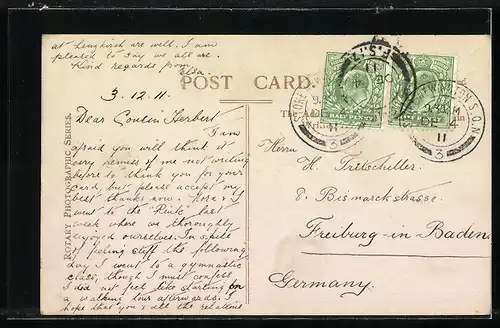 at Lenzkirch are well. I am
pleased to say we all are.
Kind regards from
Elsa.
POST CARD.
3. 12. 11.
Dear Cousin Herbert
I am
afraid you will think it
very remiss of me not writing
before to thank you for your
card, but please accept my
best thanks now.
went to the "Rink" last
week where we thoroughly
enjoyed ourselves. In spite
of feeling stiff the following
day, I went to a gymnastic
class, though I must confess
I did not feel like starting on
a walking tour afterwards. I
hope that you & all the relations
ROTARY PHOTOGRAPHIC SERIES.
HALF PENNY
HALF PENNY
11
3
S.O.N
11
3
Herrn
H. Tritscheller.
8. Bismarckstrasse.
Freiburg-in-Baden
Germany.